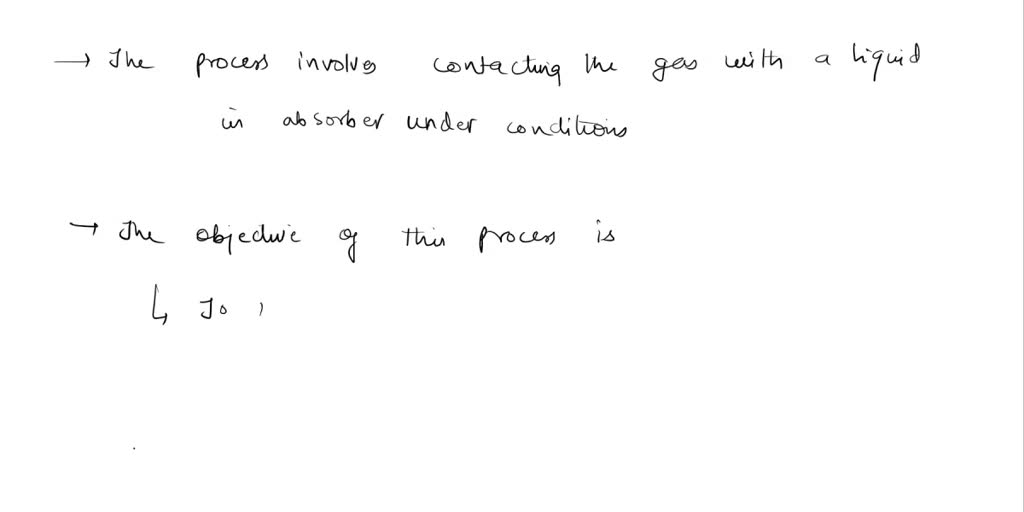 → The process involves contacting the gas with a liquid
in absorber under conditions
→ The objective of this process is
↳ To